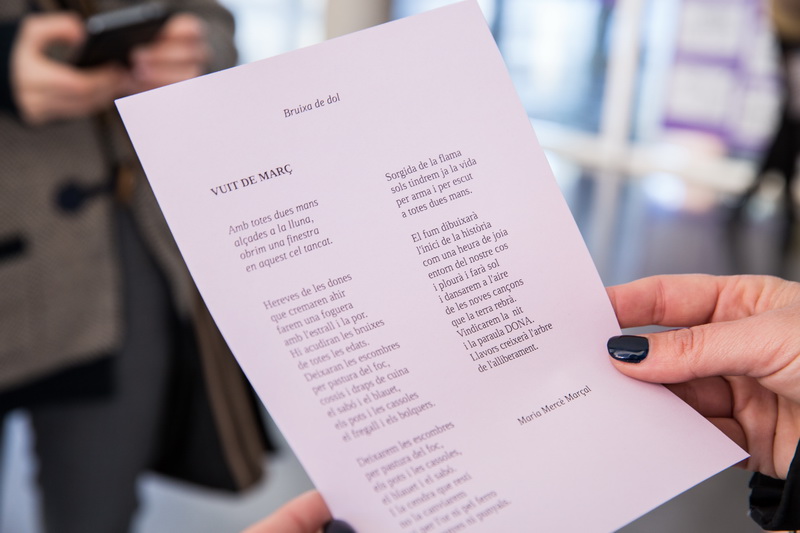 Bruixa de dol
VUIT DE MARÇ
Amb totes dues mans
alçades a la lluna,
obrim una finestra
en aquest cel tancat.
Hereves de les dones
que cremaren ahir
farem una foguera
amb l'estrall i la por.
Hi acudiran les bruixes
de totes les edats.
Deixaran les escombres
per pastura del foc,
cossis i draps de cuina
el sabó i el blauet,
els pots i les cassoles
el fregall i els bolquers.
Deixarem les escombres
per pastura del foc,
els pots i les cassoles,
el blauet i el sabó.
I la cendra que resti
no la canviarem
per l'or ni pel ferro
ni punyals.
Sorgida de la flama
sols tindrem ja la vida
per arma i per escut
a totes dues mans.
El fum dibuixarà
l'inici de la història
com una heura de joia
entorn del nostre cos
i plourà i farà sol
i dansarem a l'aire
de les noves cançons
que la terra rebrà.
Vindicarem la nit
i la paraula DONA.
Llavors creixerà l'arbre
de l'alliberament.
Maria Mercè Marçal